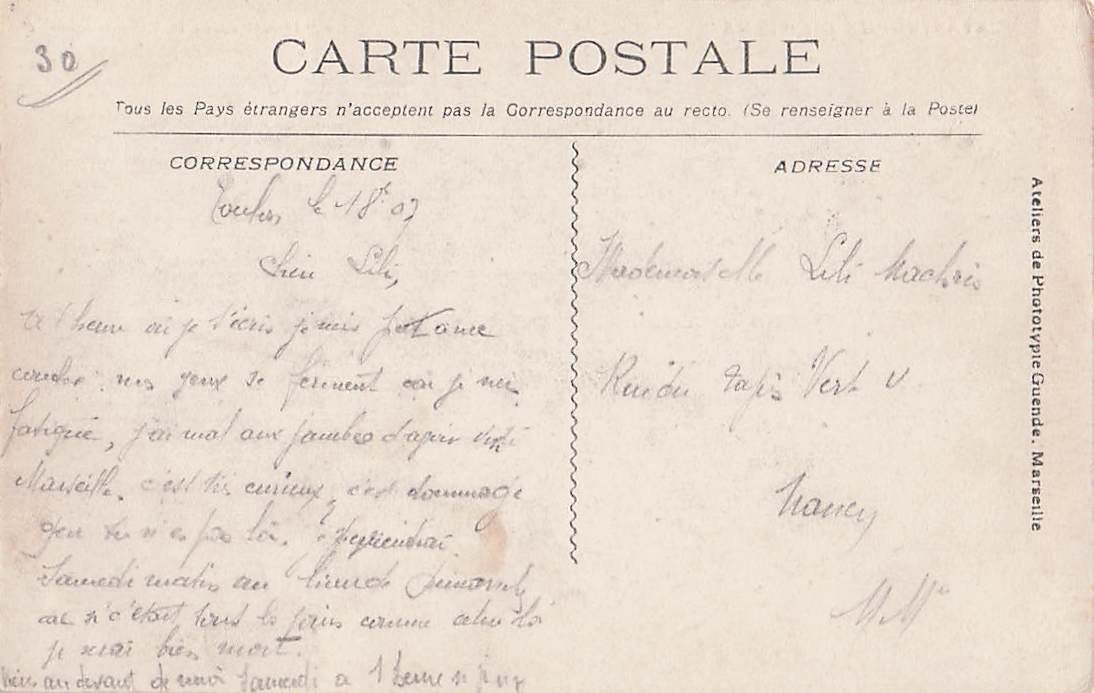 30
CARTE POSTALE
Tous les Pays étrangers n'acceptent pas la Correspondance au recto. (Se renseigner à la Poste)
CORRESPONDANCE
le 18
Lili,
l'heure où je t'écris je suis
mes yeux se ferment car je suis
fatigué, j'ai mal aux jambes d'avoir
Marseille. c'est très curieux, c'est dommage
que tu n'es pas là. je reviendrai
Samedi matin au lieu de
si c'était tous les jours comme celui là
je serai bien mort.
Viens au devant de moi Samedi a 1 heure
ADRESSE
Mademoiselle Lili
Rue du tapis Vert
Nancy
MM
Ateliers de Phototypie Guende. Marseille